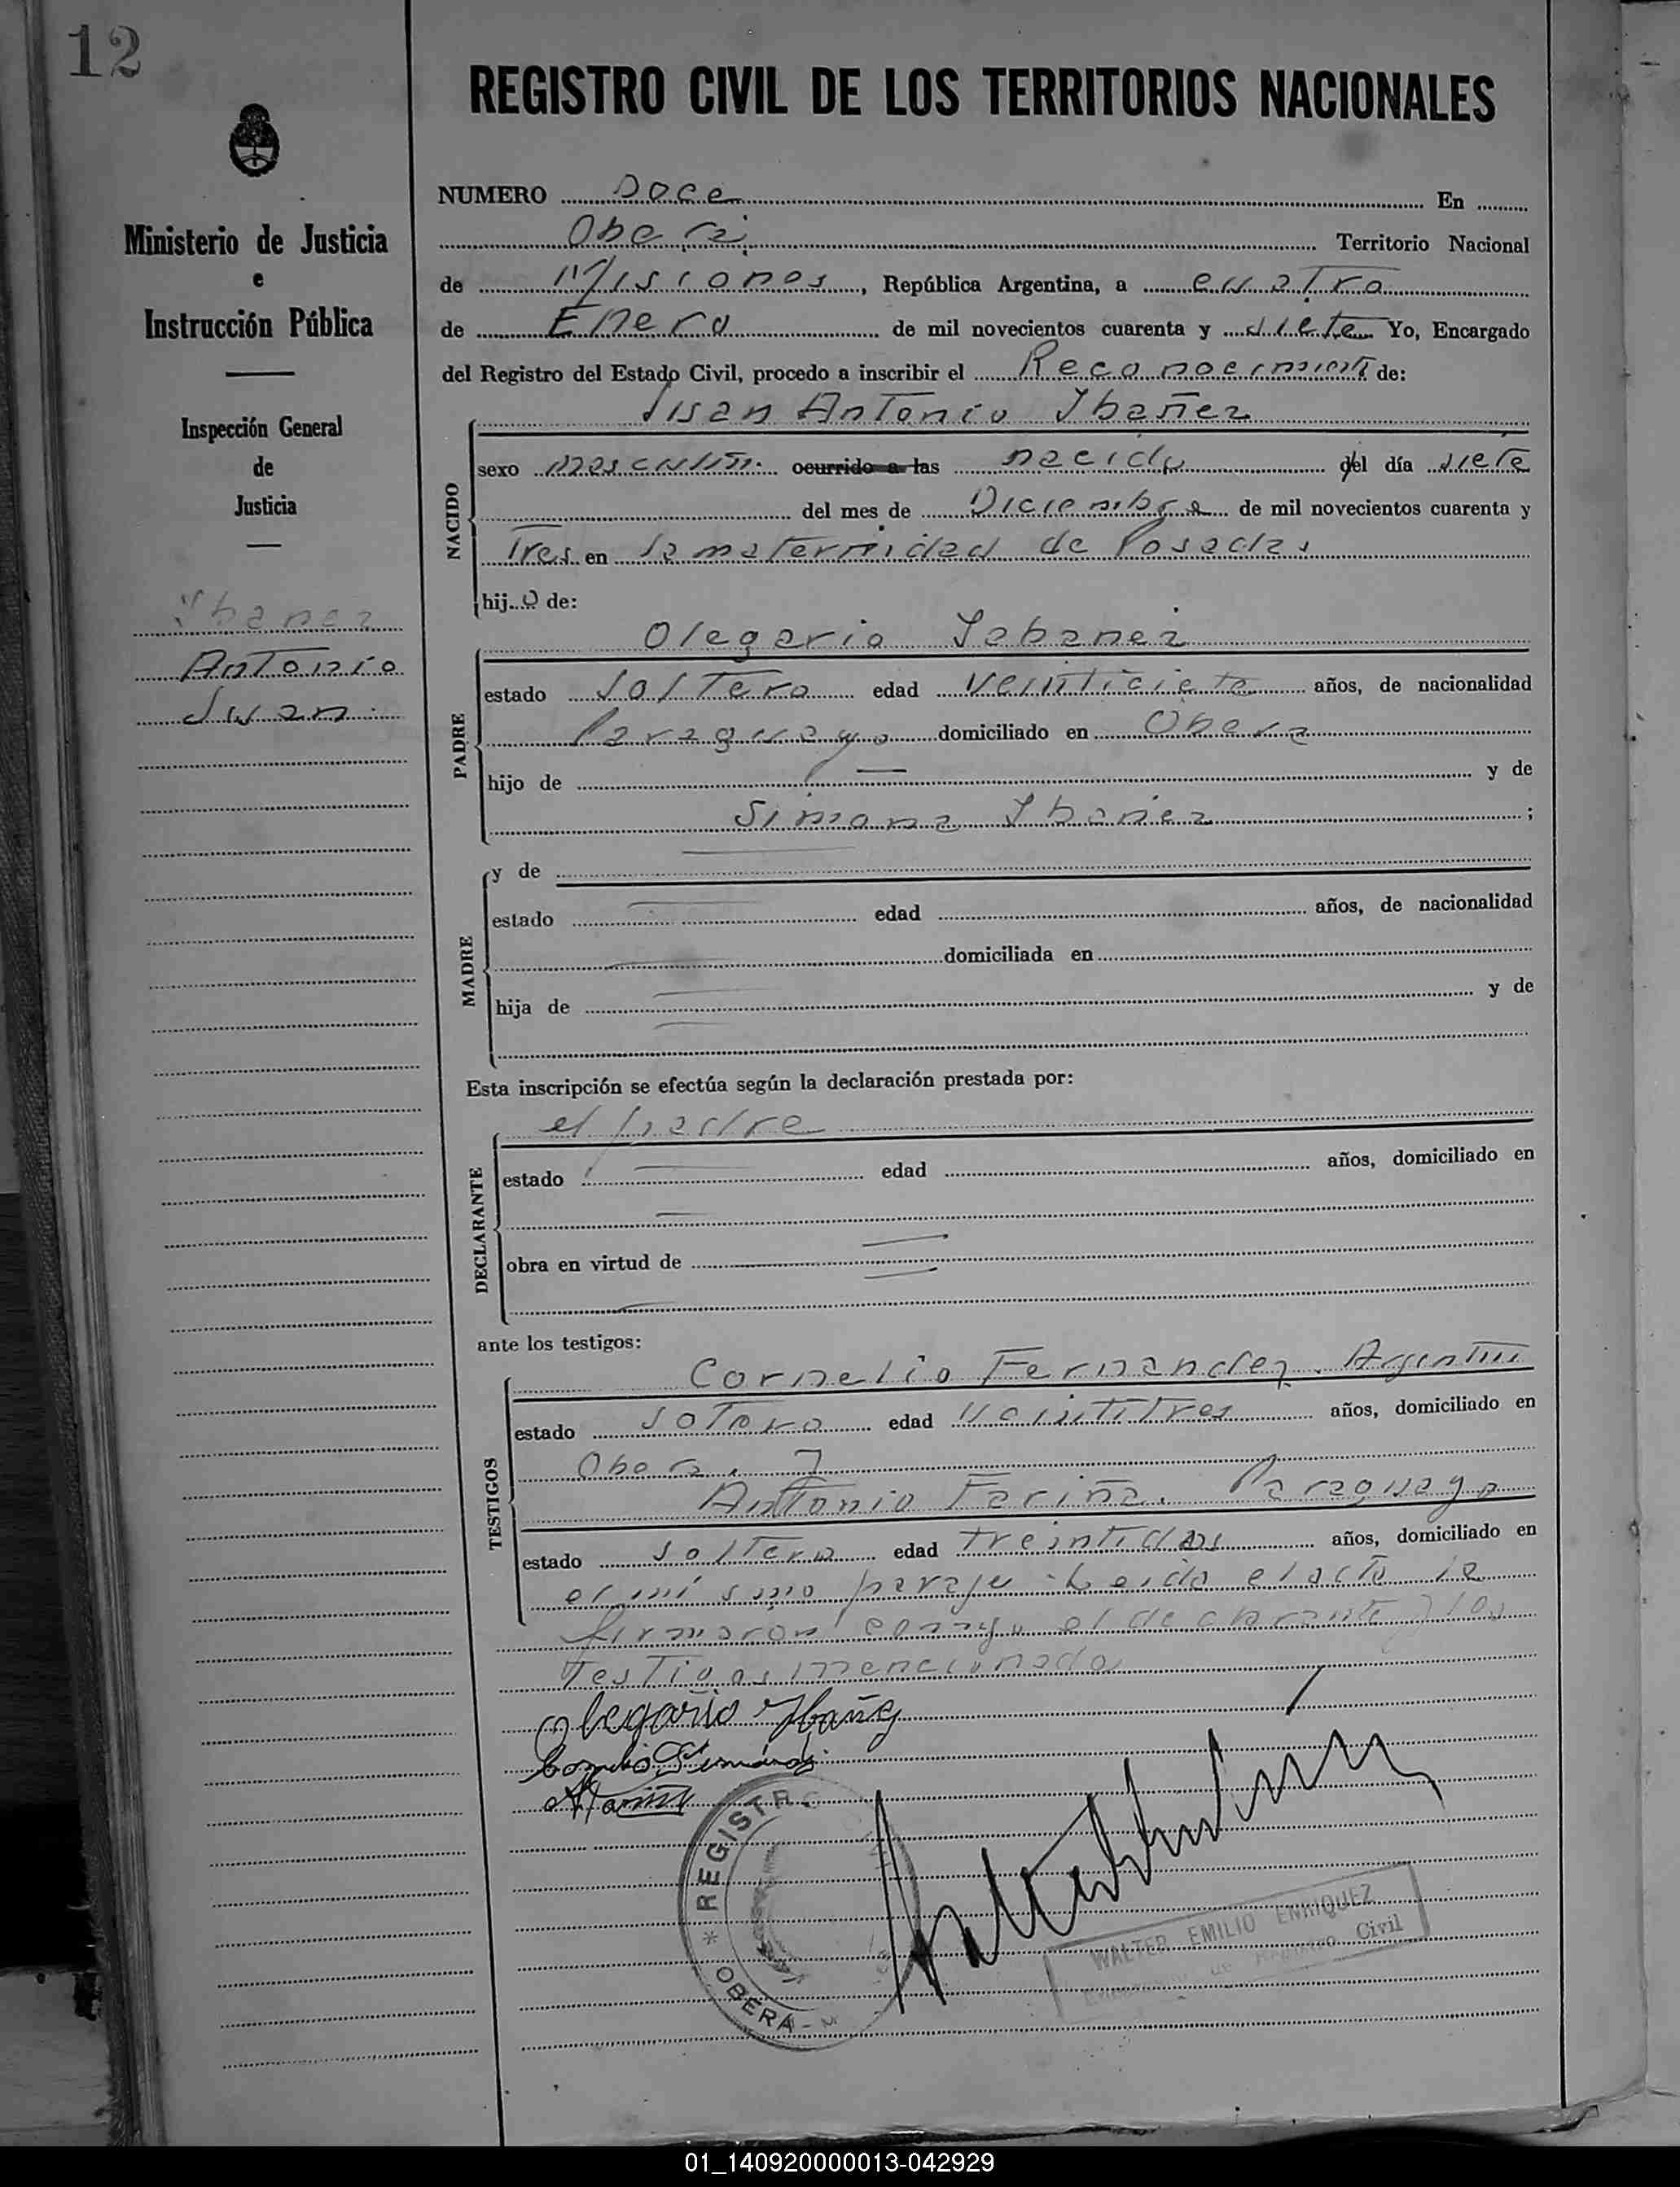 12
REGISTRO CIVIL DE LOS TERRITORIOS NACIONALES
Ministerio de Justicia
e
Instrucción Pública
Inspección General
de
Justicia
Ibanez
Antonio
Juan
NUMERO Doce En
Obera Territorio Nacional
de Misiones, República Argentina, a cuatro
de Enero de mil novecientos cuarenta y siete Yo, Encargado
del Registro del Estado Civil, procedo a inscribir el Reconocimiento de:
Juan Antonio Ibañez
NACIDO
sexo masculin. ocurrido a las nacido del día siete
del mes de Diciembre de mil novecientos cuarenta y
Tres en la maternidad de Posadas
hijo de:
PADRE
Olegario Iabanez
estado Soltero edad veinticiete años, de nacionalidad
Paraguayo domiciliado en Obera
hijo de — y de
Simona Ibañez ;
MADRE
y de
estado edad años, de nacionalidad
domiciliada en
hija de y de
Esta inscripción se efectúa según la declaración prestada por:
DECLARANTE
el padre
estado edad años, domiciliado en
obra en virtud de
ante los testigos:
TESTIGOS
Cornelio Fernandez. Argentin
estado Sotero edad Veintitres años, domiciliado en
Obera. y
Antonio Fariña. Paraguayo
estado Soltero edad treintidos años, domiciliado en
el mismo paraje. Leida el acta la
firmaron conmigo el declarante y los
Testigos mencionado
Olegario Ibañez
Cornelio Fernández
REGISTRO
* OBERÁ - M
WALTER EMILIO ENRIQUEZ
Encargado de Registro Civil
01_140920000013-042929